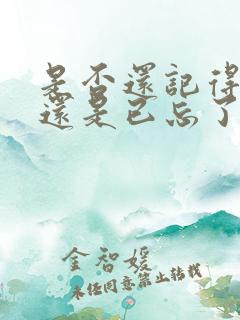 是否還記得
還是已忘了
金智媛
未经同意禁止转载